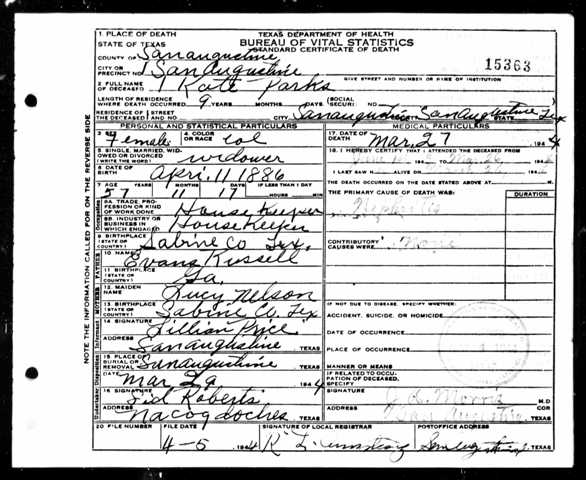 1. PLACE OF DEATH
STATE OF TEXAS
TEXAS DEPARTMENT OF HEALTH
BUREAU OF VITAL STATISTICS
STANDARD CERTIFICATE OF DEATH
15363
COUNTY OF San augustine
CITY OR PRECINCT NO. 1 San Augustine
GIVE STREET AND NUMBER OR NAME OF INSTITUTION
2. FULL NAME OF DECEASED Kate Parks
LENGTH OF RESIDENCE WHERE DEATH OCCURRED 9 YEARS MONTHS DAYS SOCIAL SECURITY NO.
RESIDENCE OF THE DECEASED STREET AND NO. CITY San augustine COUNTY San Augustine STATE Tex
PERSONAL AND STATISTICAL PARTICULARS
MEDICAL PARTICULARS
3. SEX Female 4. COLOR OR RACE col
5. SINGLE, MARRIED, WIDOWED OR DIVORCED (WRITE THE WORD) widower
6. DATE OF BIRTH Apri. 11 1886
7. AGE 57 YEARS 11 MONTHS 17 DAYS IF LESS THAN 1 DAY HOURS MIN
8A. TRADE, PROFESSION OR KIND OF WORK DONE House Keeper
8B. INDUSTRY OR BUSINESS IN WHICH ENGAGED House Keeper
9. BIRTHPLACE (STATE OR COUNTRY) Sabine Co Tex,
10. NAME Evans Russell
11. BIRTHPLACE (STATE OR COUNTRY) Ga,
12. MAIDEN NAME Lucy Nelson
13. BIRTHPLACE (STATE OR COUNTRY) Sabine Co, Tex
14. SIGNATURE Lillian Price
ADDRESS San augustine TEXAS
15. PLACE OF BURIAL OR REMOVAL San augustine TEXAS
DATE Mar 29 1944
16. SIGNATURE Sid Roberts
ADDRESS Nacogdoches TEXAS
17. DATE OF DEATH Mar, 27 1944
18. I HEREBY CERTIFY THAT I ATTENDED THE DECEASED FROM
I LAST SAW H ALIVE ON
THE DEATH OCCURRED ON THE DATE STATED ABOVE AT M.
THE PRIMARY CAUSE OF DEATH WAS: DURATION
Nephritis
CONTRIBUTORY CAUSES WERE: None
IF NOT DUE TO DISEASE, SPECIFY WHETHER:
ACCIDENT, SUICIDE, OR HOMICIDE
DATE OF OCCURRENCE
PLACE OF OCCURRENCE
MANNER OR MEANS
IF RELATED TO OCCUPATION OF DECEASED, SPECIFY
M.D.
COR
ADDRESS San Augustine TEXAS
20 FILE NUMBER FILE DATE SIGNATURE OF LOCAL REGISTRAR POSTOFFICE ADDRESS
4-5 1944 San Augustine TEXAS
NOTE THE INFORMATION CALLED FOR ON THE REVERSE SIDE